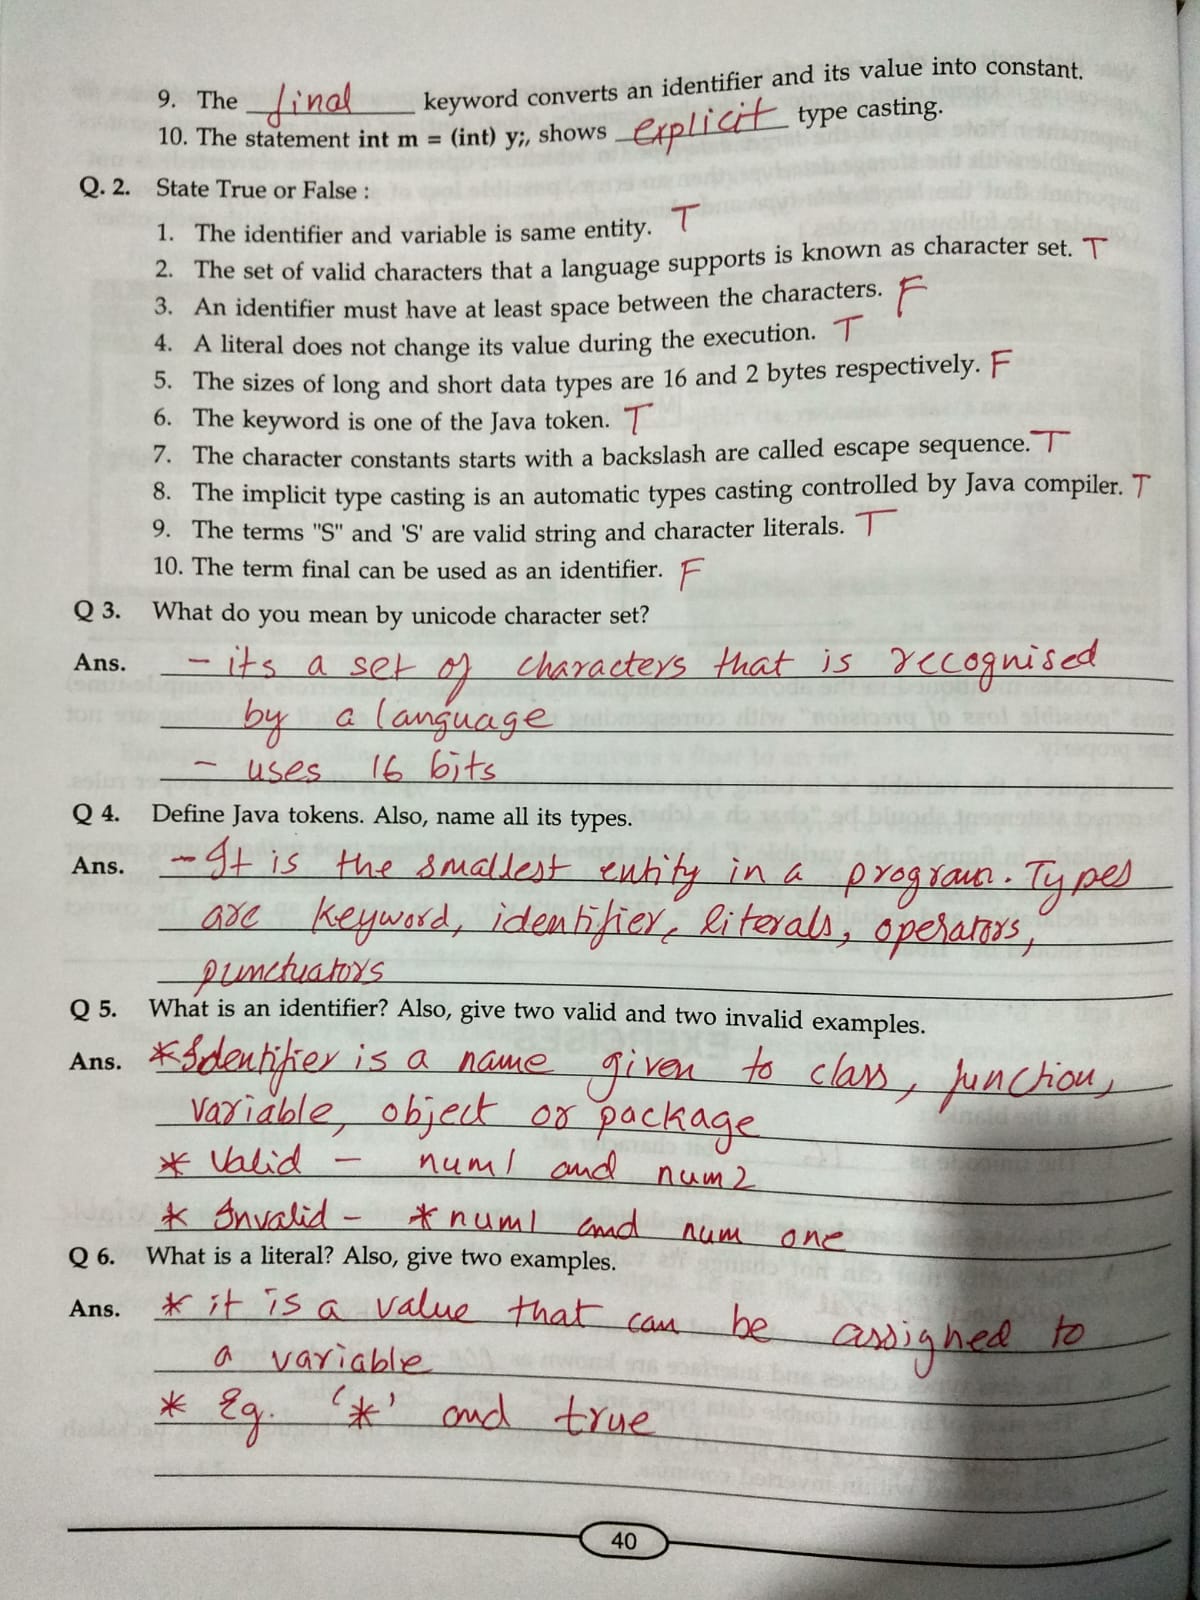 9. The final keyword converts an identifier and its value into constant.
10. The statement int m = (int) y;, shows explicit type casting.
Q. 2. State True or False :
1. The identifier and variable is same entity. T
2. The set of valid characters that a language supports is known as character set. T
3. An identifier must have at least space between the characters. F
4. A literal does not change its value during the execution. T
5. The sizes of long and short data types are 16 and 2 bytes respectively. F
6. The keyword is one of the Java token. T
7. The character constants starts with a backslash are called escape sequence. T
8. The implicit type casting is an automatic types casting controlled by Java compiler. T
9. The terms "S" and 'S' are valid string and character literals. T
10. The term final can be used as an identifier. F
Q 3. What do you mean by unicode character set?
Ans. - its a set of characters that is recognised
by a language
- uses 16 bits
Q 4. Define Java tokens. Also, name all its types.
Ans. - It is the smallest entity in a program. Types
are keyword, identifier, literals, operators,
punctuators
Q 5. What is an identifier? Also, give two valid and two invalid examples.
Ans. * Identifier is a name given to class, function,
variable, object or package
* Valid - num1 and num2
* Invalid - *num1 and num one
Q 6. What is a literal? Also, give two examples.
Ans. * it is a value that can be assigned to
a variable
* Eg. '*' and true
40